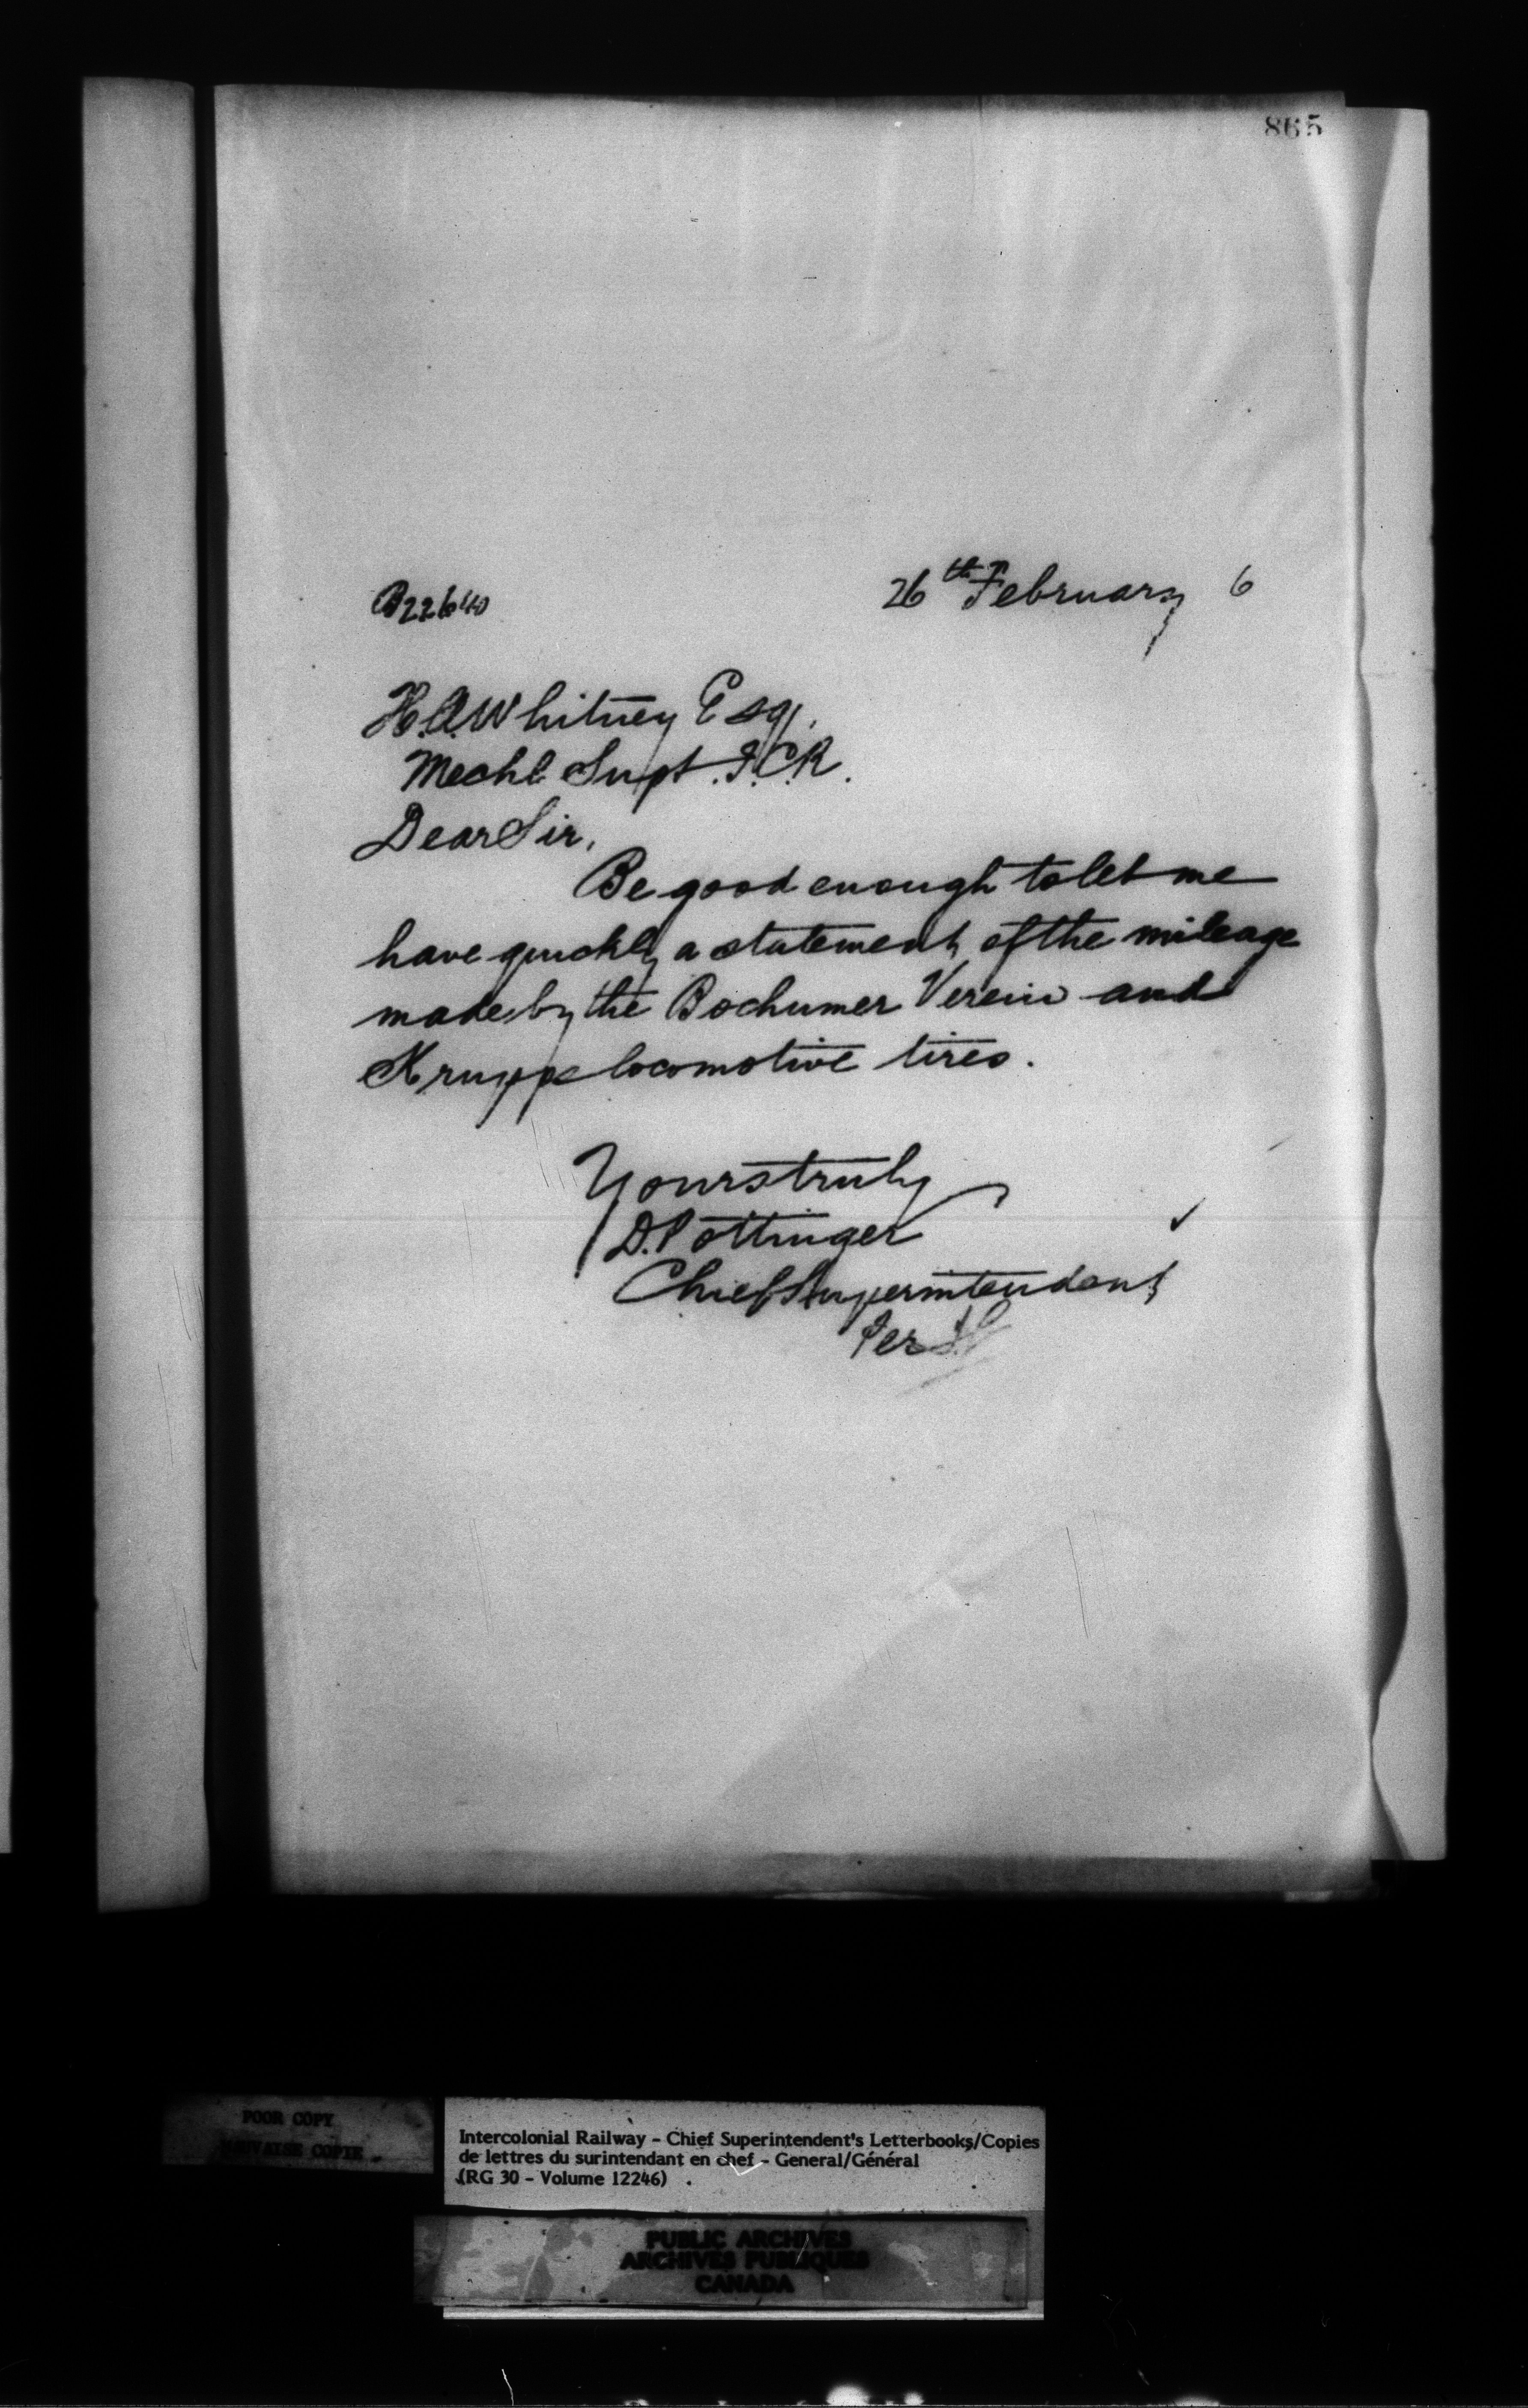 865
26th February 6
B22640
H.A. Whitney Esq.
Mechl Supt. I.C.R.
Dear Sir,
Be good enough to let me
have quickly a statement of the mileage
made by the Bochumer Verein and
Krupps locomotive tires.
Yours truly
D. Pottinger
Chief Superintendent
Per
POOR COPY
MAUVAISE COPIE
Intercolonial Railway - Chief Superintendent's Letterbooks/Copies
de lettres du surintendant en chef - General/Général
(RG 30 - Volume 12246)
PUBLIC ARCHIVES
ARCHIVES PUBLIQUES
CANADA